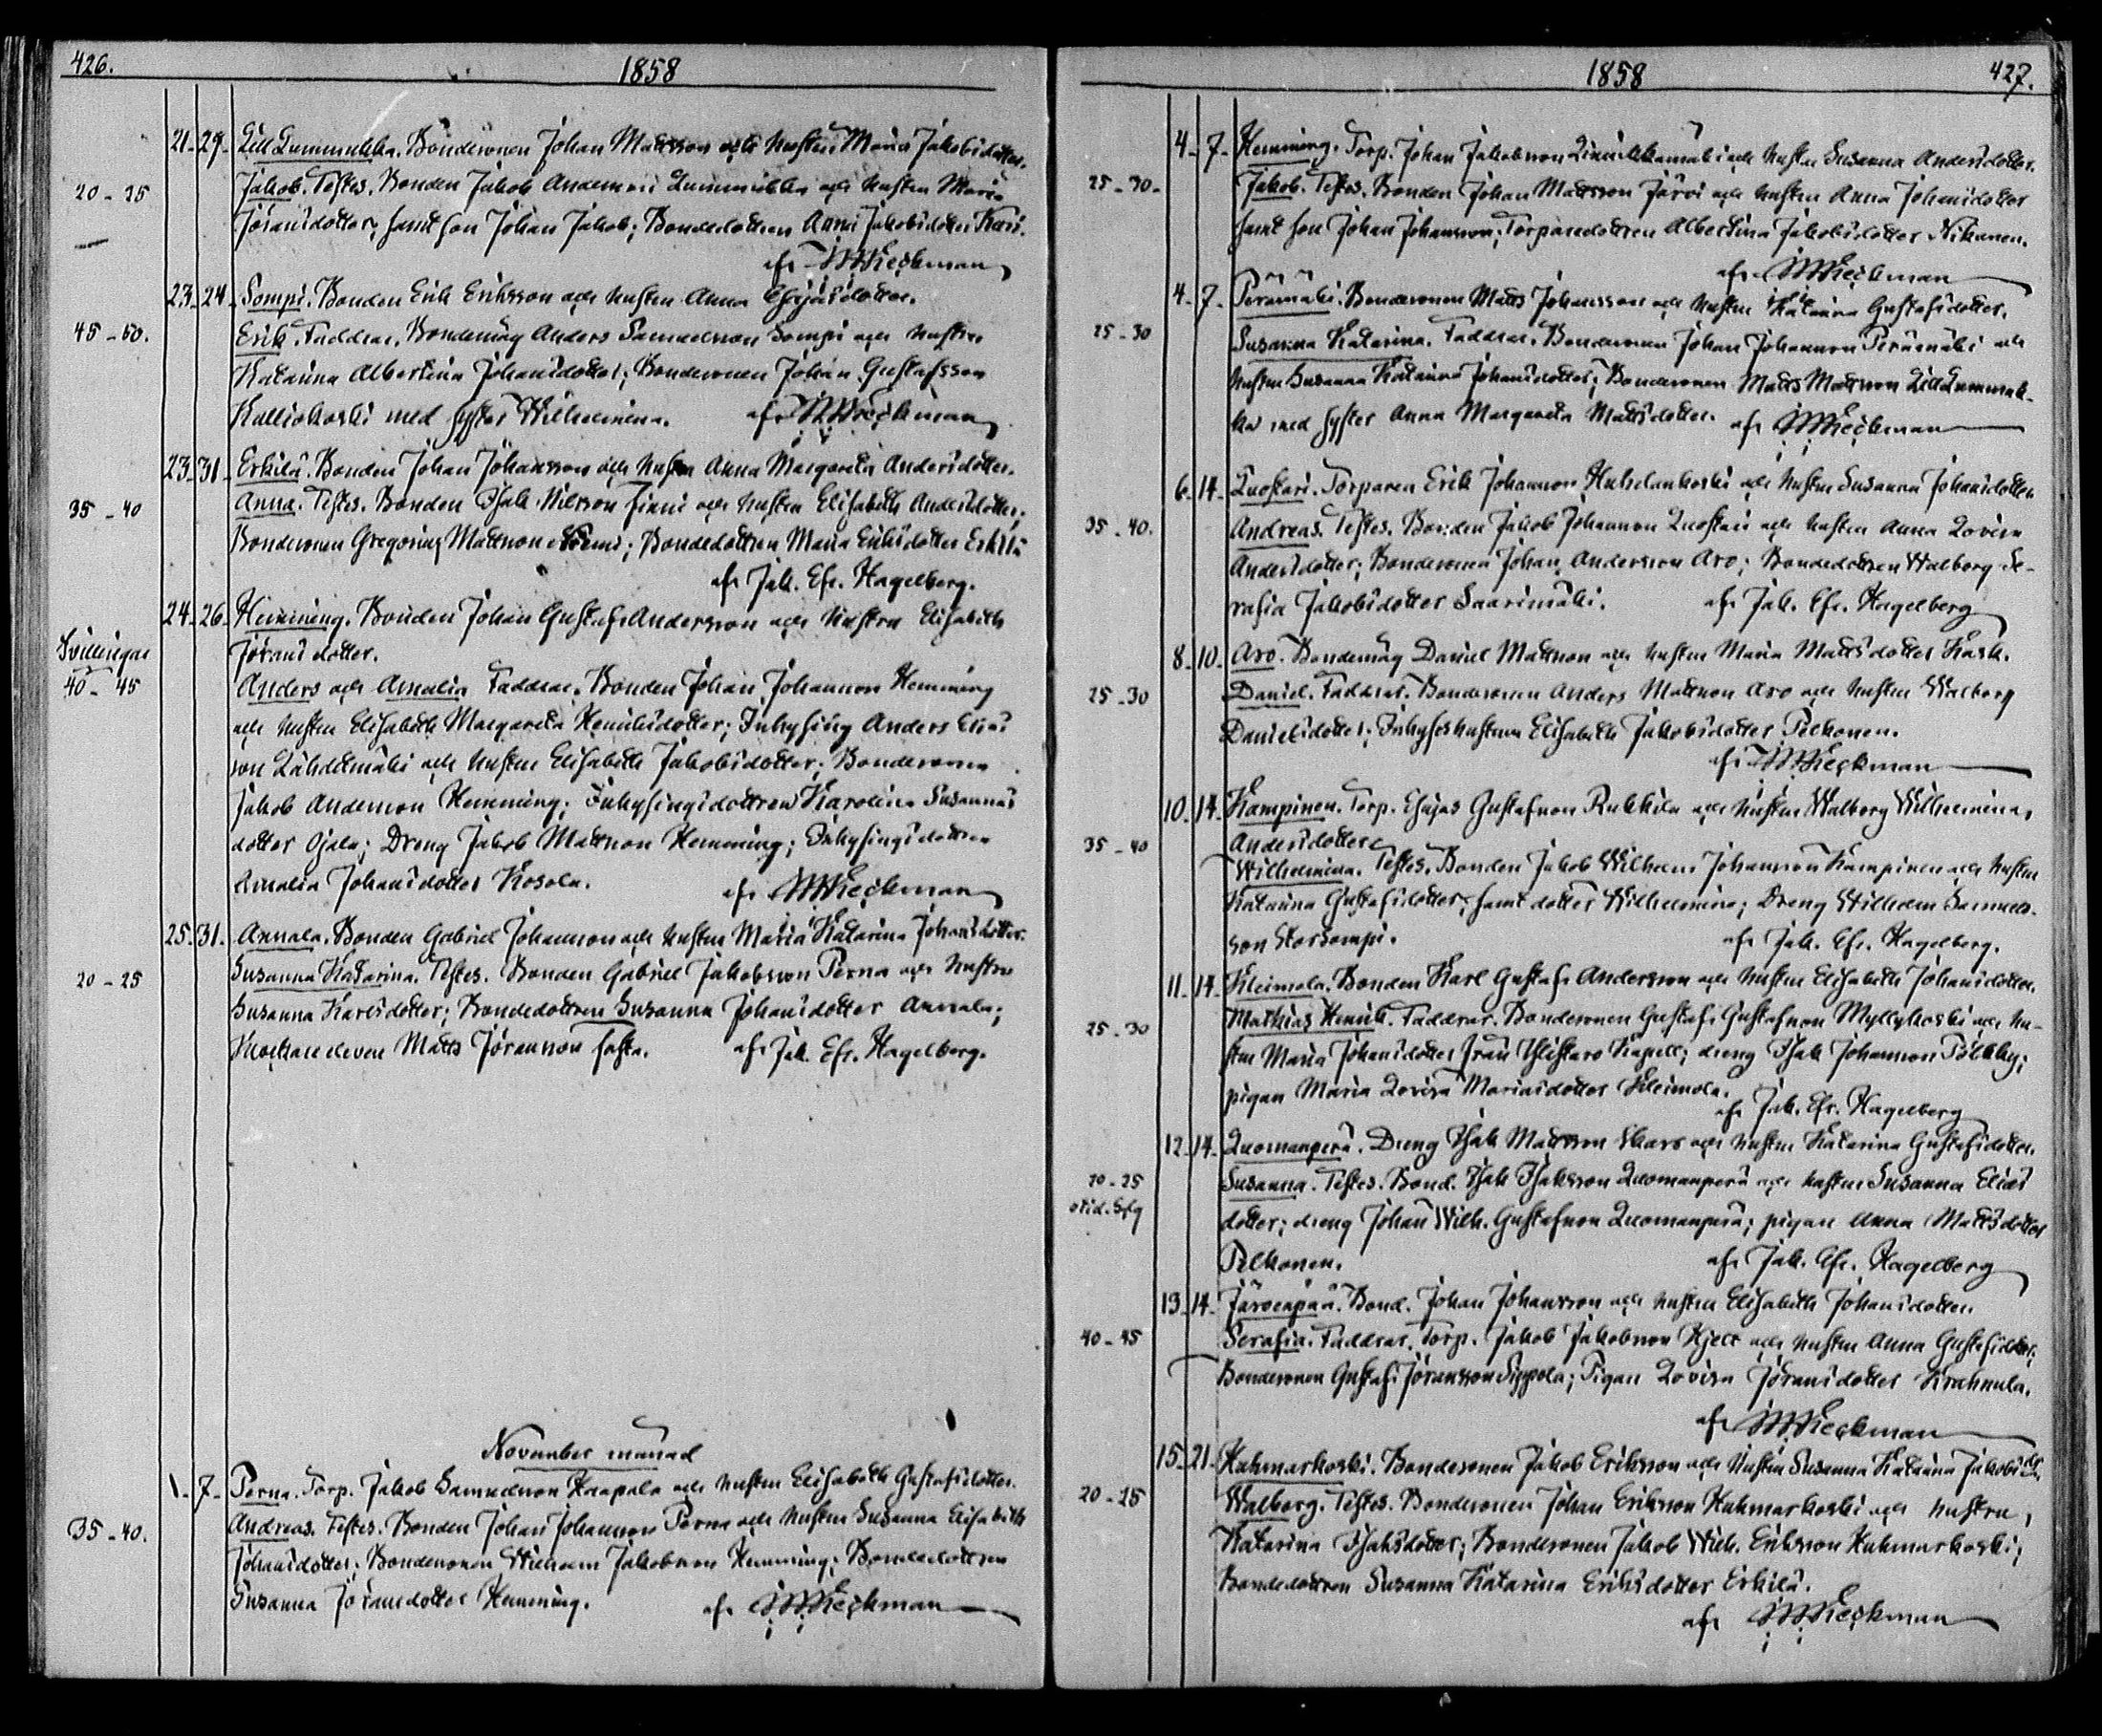 426.
1858
21. 29. Lill Lummukka. Bondesonen Johan Mattsson och hustru Maria Jakobsdotter.
20 - 25 Jakob. Testes. Bonden Jakob Andersson Lummukka och hustru Maria
Jöransdotter, samt son Johan Jakob; Bondedottren Anna Jakobsdotter
af
23. 24. Sompi. Bonden Erik Eriksson och hustru Anna Esajasdotter.
45 - 50. Erik. Faddrar. Bondemåg Anders Samuelsson Sompi och hustru
Katarina Albertina Johansdotter; Bondesonen Johan Gustafsson
Kalliokoski med syster Wilhelmina. af
23. 31. Erkilä. Bonden Johan Johansson och hustru Anna Margareta Andersdotter.
35 - 40 Anna. Testes. Bonden Isak Nilsson Finni och hustru Elisabeth Andersdotter;
Bondesonen Gregorius Mattsson; Bondedottren Maria Eriksdotter Erkilä
af Jak. Efr. Hagelberg.
24. 26. Hemming. Bonden Johan Gustaf Andersson och hustru Elisabeth
Tvillingar Jöransdotter.
40 - 45 Anders och Amalia Faddrar. Bonden Johan Johansson Hemming
och hustru Elisabeth Margareta Henriksdotter; Inhysing Anders Elias
son Lähdetmäki och hustru Elisabeth Jakobsdotter; Bondesonen
Jakob Andersson Hemming; Inhysingsdottren Karolina Susannas
dotter Ojala; Dreng Jakob Mattsson Hemming; Inhysingsdottren
Amalia Johansdotter Kosola. af
25. 31. Annala. Bonden Gabriel Johansson och hustru Maria Katarina Johansdotter.
20 - 25 Susanna Katarina. Testes. Bonden Gabriel Jakobsson Perna och hustru
Susanna Karlsdotter; Bondedottren Susanna Johansdotter Annala;
Matts Jöransson af Jak. Efr. Hagelberg.
November månad
1. 7. Perna. Torp. Jakob Samuelsson Haapala och hustru Elisabeth Gustafsdotter.
35 - 40. Andreas. Testes. Bonden Johan Johansson Perna och hustru Susanna Elisabeth
Johansdotter; Bondesonen Wilhelm Jakobsson Hemming; Bondedottren
Susanna Jöransdotter Hemming. af
1858
427.
4. 7. Hemming. Torp. Johan Jakobsson och hustru Susanna Andersdotter.
25 - 30. Jakob. Testes. Bonden Johan Mattsson Järvi och hustru Anna Johansdotter
samt son Johan Johansson; Torparedottren Albertina Jakobsdotter Nikanen.
af
4. 7. Perämäki. Bondesonen Matts Johansson och hustru Katarina Gustafsdotter.
25 - 30 Susanna Katarina. Faddrar. Bondesonen Johan Johansson Perämäki och
hustru Susanna Katarina Johansdotter; Bondesonen Matts Mattsson Lill Lummuk-
ka med syster Anna Margareta Mattsdotter. af
6. 14. Luostari. Torparen Erik Johansson Huhdankoski och hustru Susanna Johansdotter
35 - 40. Andreas. Testes. Bonden Jakob Johansson Luostari och hustru Anna Lovisa
Andersdotter; Bondesonen Johan Andersson Aro; Bondedottren Walborg Se-
rafia Jakobsdotter Saarimäki. af Jak. Efr. Hagelberg
8. 10. Aro. Bondemåg Daniel Mattsson och hustru Maria Mattsdotter Kask.
25 - 30 Daniel. Faddrar. Bondesonen Anders Mattsson Aro och hustru Walborg
Danielsdotter; Inhyseshustrun Elisabeth Jakobsdotter Pelkonen.
af
10. 14. Kampinen. Torp. Esajas Gustafsson Rukkila och hustru Walborg Wilhelmina
35 - 40 Andersdotter
Wilhelmina. Testes. Bonden Jakob Wilhelm Johansson Kampinen och hustru
Katarina Gustafsdotter, samt dotter Wilhelmina; Dreng Wilhelm Samuels-
son Storsompi. af Jak. Efr. Hagelberg.
11. 14. Kleimola. Bonden Karl Gustaf Andersson och hustru Elisabeth Johansdotter.
25 - 30 Mathias Henrik. Faddrar. Bondesonen Gustaf Gustafsson Myllykoski och hu-
stru Maria Johansdotter från Ylistaro Kapell; dreng Isak Johansson Pölkky;
pigan Maria Lovisa Mariasdotter Kleimola.
af Jak. Efr. Hagelberg
12. 14. Luomanperä. Dreng Isak Mattsson och hustru Katarina Gustafsdotter.
20 - 25 Susanna. Testes. Bond. Isak Isaksson Luomanperä och hustru Susanna Elias
dotter; dreng Johan Wilh. Gustafsson Luomanperä; pigan Anna Mattsdotter
Pelkonen. af Jak. Efr. Hagelberg
13. 14. Järvenpää. Bond. Johan Johansson och hustru Elisabeth Johansdotter.
40 - 45 Serafia. Faddrar. Torp. Jakob Jakobsson och hustru Anna Gustafsdotter;
Bondesonen Gustaf Jöransson Sippola; Pigan Lovisa Jöransdotter
af
15. 21. Kuhmarkoski. Bondesonen Jakob Eriksson och hustru Susanna Katarina Jakobsdr.
20 - 25 Walborg. Testes. Bondesonen Johan Eriksson Kuhmarkoski och hustru
Katarina Isaksdotter; Bondesonen Jakob Wilh. Eriksson Kuhmarkoski;
Bondedottren Susanna Katarina Eriksdotter Erkilä.
af